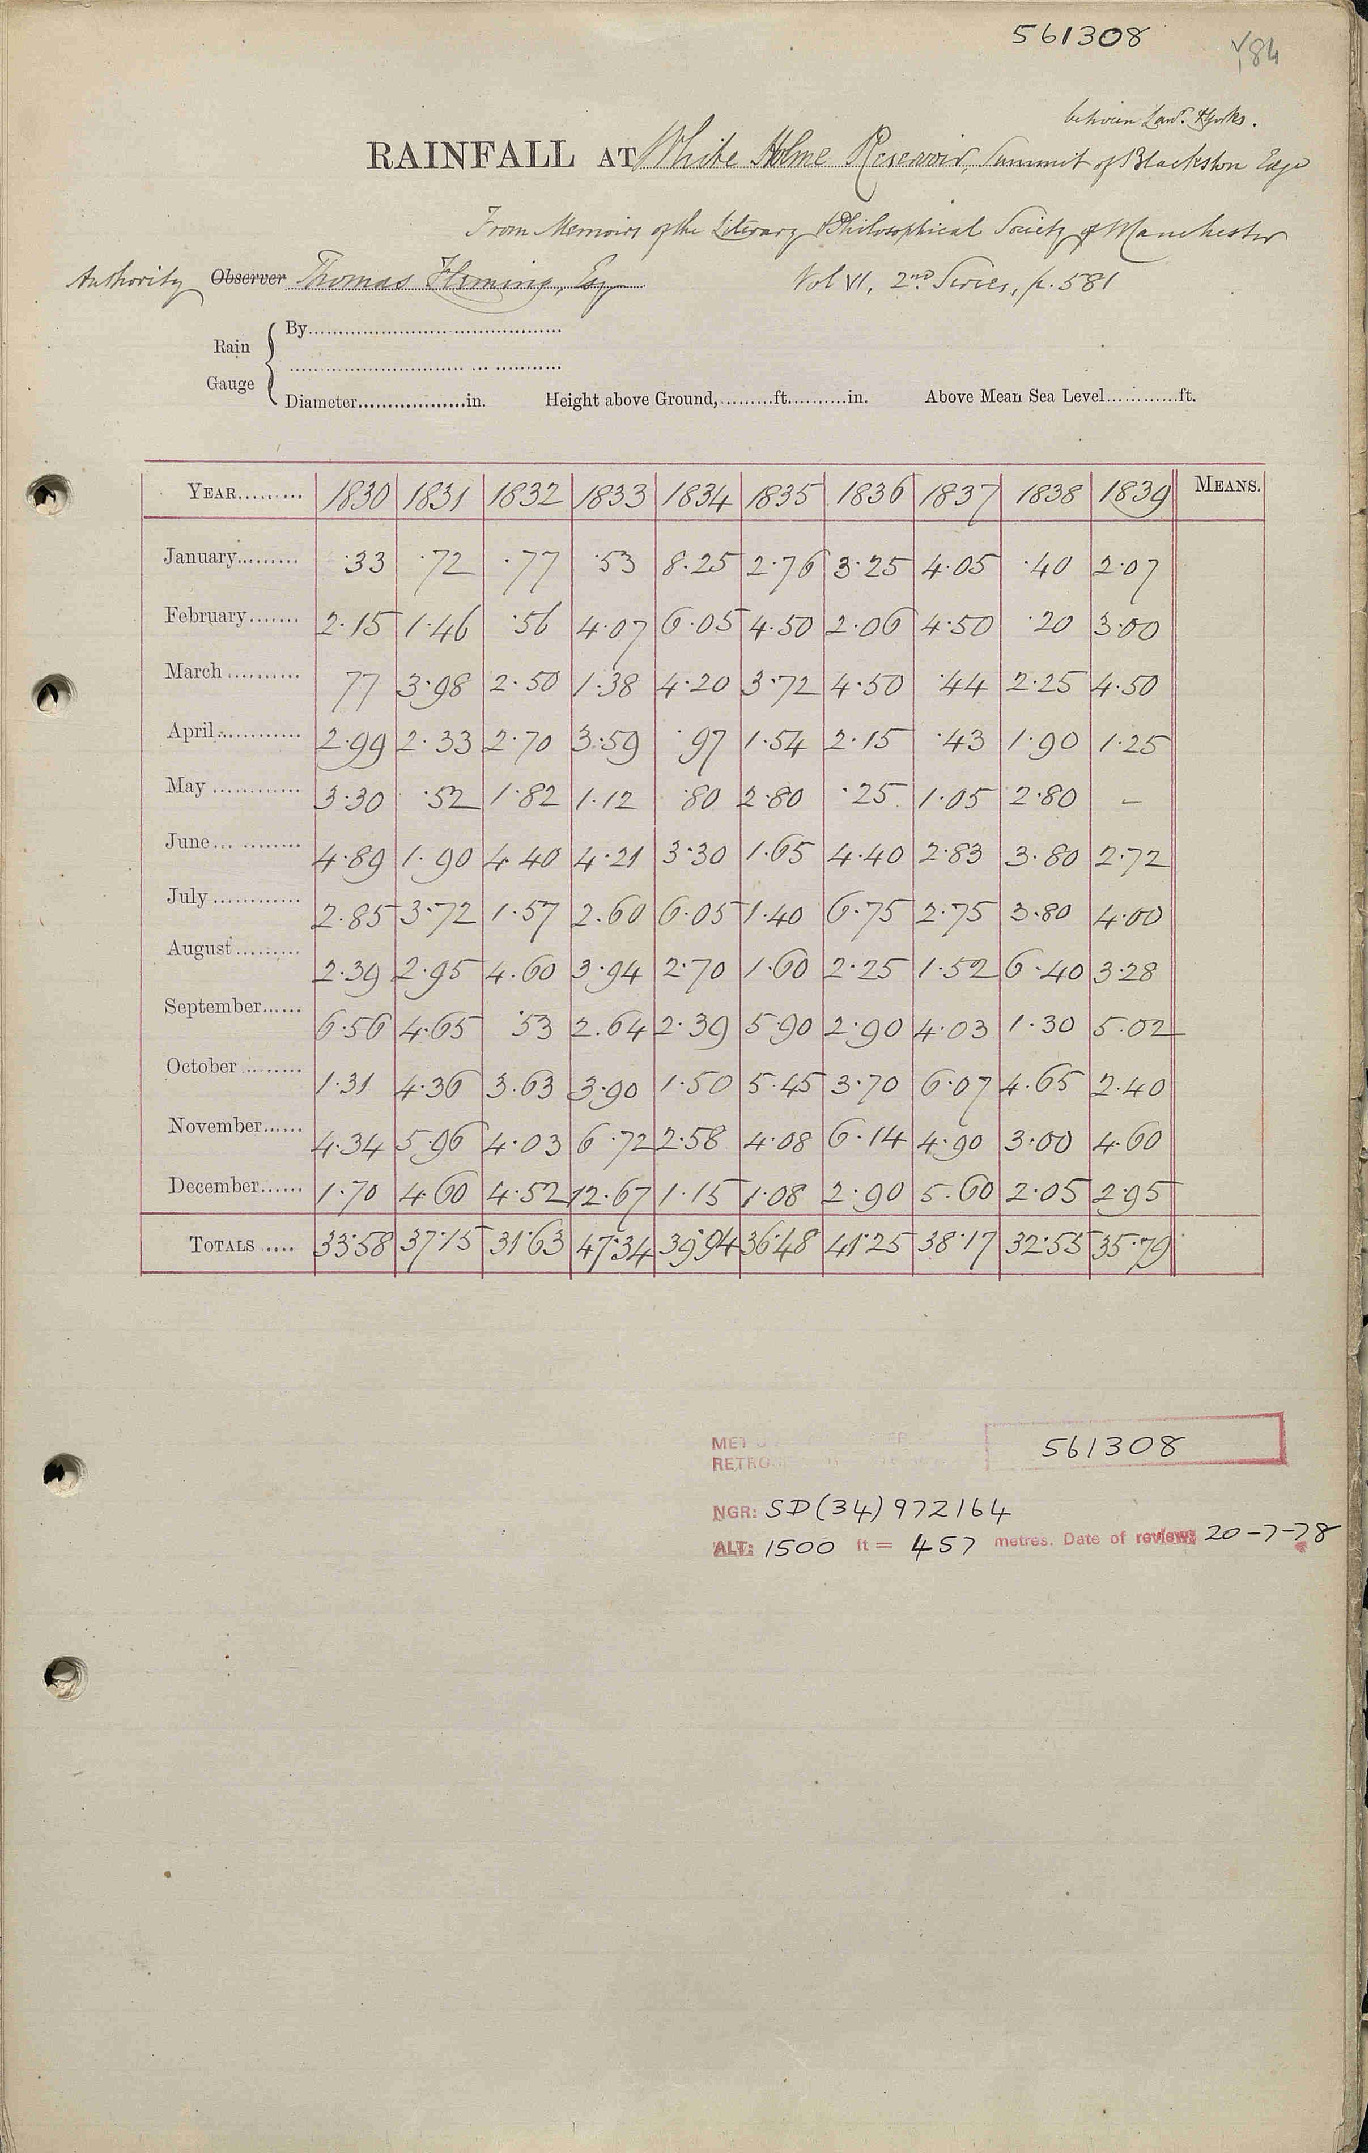 561308
84
between Lanc. & Yorks.
RAINFALL AT White Holme Reservoir, Summit of Blackston Edge
From Memoirs of the Literary & Philosophical Society of Manchester
Authority Observer Thomas Fleming, Esq Vol VI, 2nd Series, p. 581
Rain Gauge
By
Diameter in. Height above Ground, ft. in. Above Mean Sea Level ft.
YEAR 1830 1831 1832 1833 1834 1835 1836 1837 1838 1839 MEANS.
January ·33 ·72 ·77 ·53 8·25 2·76 3·25 4·05 ·40 2·07
February 2·15 1·46 ·56 4·07 6·05 4·50 2·06 4·50 ·20 3·00
March 77 3·98 2·50 1·38 4·20 3·72 4·50 ·44 2·25 4·50
April 2·99 2·33 2·70 3·59 ·97 1·54 2·15 ·43 1·90 1·25
May 3·30 ·52 1·82 1·12 ·80 2·80 ·25 1·05 2·80 –
June 4·89 1·90 4·40 4·21 3·30 1·65 4·40 2·83 3·80 2·72
July 2·85 3·72 1·57 2·60 6·05 1·40 6·75 2·75 3·80 4·00
August 2·39 2·95 4·60 3·94 2·70 1·60 2·25 1·52 6·40 3·28
September 6·56 4·65 ·53 2·64 2·39 5·90 2·90 4·03 1·30 5·02
October 1·31 4·36 3·63 3·90 1·50 5·45 3·70 6·07 4·65 2·40
November 4·34 5·96 4·03 6·72 2·58 4·08 6·14 4·90 3·00 4·60
December 1·70 4·60 4·52 12·67 1·15 1·08 2·90 5·60 2·05 2·95
TOTALS 33·58 37·15 31·63 47·34 39·94 36·48 41·25 38·17 32·55 35·79
MET
RETRO
561308
NGR: SD (34) 972164
ALT: 1500 ft = 457 metres. Date of review: 20-7-78